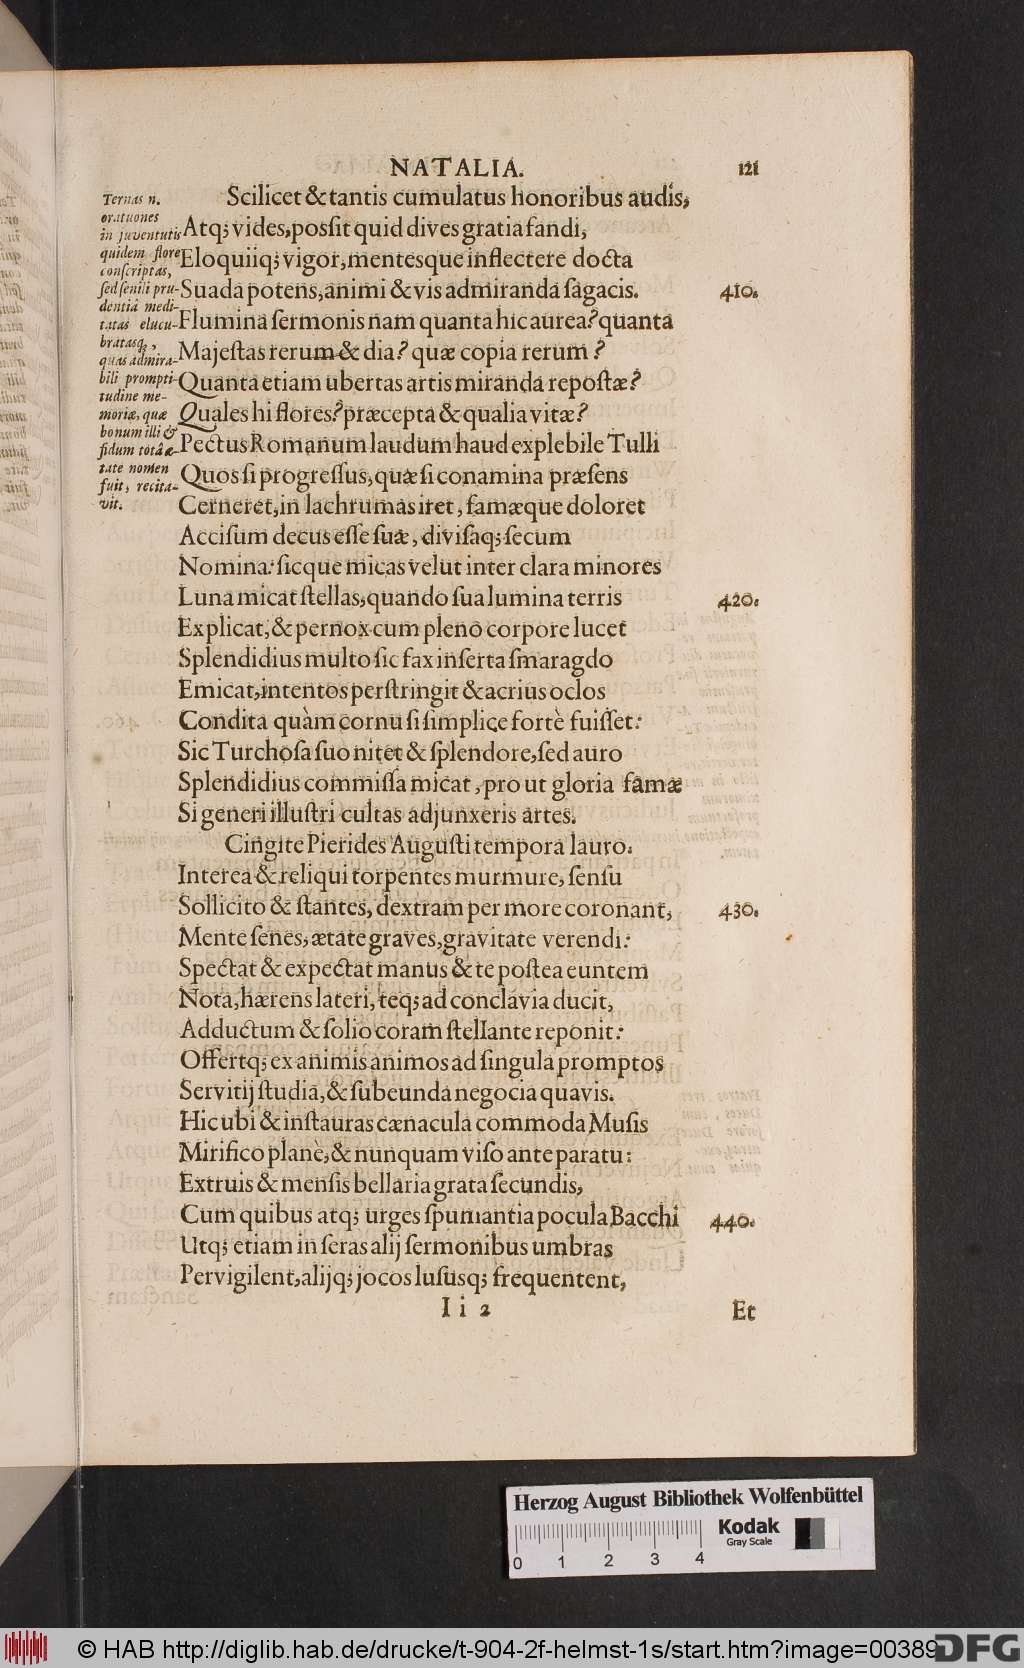 NATALIA. 121
Ternas n.
orationes
in juventutis
quidem flore
conſcriptas,
ſed ſenili pru-
dentiâ medi-
tatas elucu-
bratasq;,
quas admira-
bili prompti-
tudine me-
moriæ, quæ
bonum illi &
fidum totâ æ-
tate nomen
fuit, recita-
vit.
Scilicet & tantis cumulatus honoribus audis,
Atq; vides, poſſit quid dives gratia fandi,
Eloquiiq; vigor, mentesque inflectere docta
Suada potens, animi & vis admiranda ſagacis. 410.
Flumina ſermonis nam quanta hic aurea? quanta
Majeſtas rerum & dia? quæ copia rerum?
Quanta etiam ubertas artis miranda repoſtæ?
Quales hi flores? præcepta & qualia vitæ?
Pectus Romanum laudum haud explebile Tulli
Quos ſi progreſſus, quæ ſi conamina præſens
Cerneret, in lachrumas iret, famæque doloret
Acciſum decus eſſe ſuæ, diviſaq; ſecum
Nomina: ſicque micas velut inter clara minores
Luna micat ſtellas, quando ſua lumina terris 420.
Explicat, & pernox cum pleno corpore lucet
Splendidius multo ſic fax inſerta ſmaragdo
Emicat, intentos perſtringit & acrius oclos
Condita quàm cornu ſi ſimplice fortè fuiſſet:
Sic Turchoſa ſuo nitet & ſplendore, ſed auro
Splendidius commiſſa micat, pro ut gloria famæ
Si generi illuſtri cultas adjunxeris artes.
Cingite Pierides Auguſti tempora lauro.
Interea & reliqui torpentes murmure, ſenſu
Sollicito & ſtantes, dextram per more coronant, 430.
Mente ſenes, ætate graves, gravitate verendi:
Spectat & expectat manus & te poſtea euntem
Nota, hærens lateri, teq; ad conclavia ducit,
Adductum & ſolio coram ſtellante reponit:
Offertq; ex animis animos ad ſingula promptos
Servitij ſtudia, & ſubeunda negocia quavis.
Hic ubi & inſtauras cænacula commoda Muſis
Mirifico planè, & nunquam viſo ante paratu:
Extruis & menſis bellaria grata ſecundis,
Cum quibus atq; urges ſpumantia pocula Bacchi 440.
Utq; etiam in ſeras alij ſermonibus umbras
Pervigilent, alijq; jocos luſusq; frequentent,
I i 2 Et
Herzog August Bibliothek Wolfenbüttel
Kodak
Gray Scale
0 1 2 3 4
© HAB http://diglib.hab.de/drucke/t-904-2f-helmst-1s/start.htm?image=00389
DFG